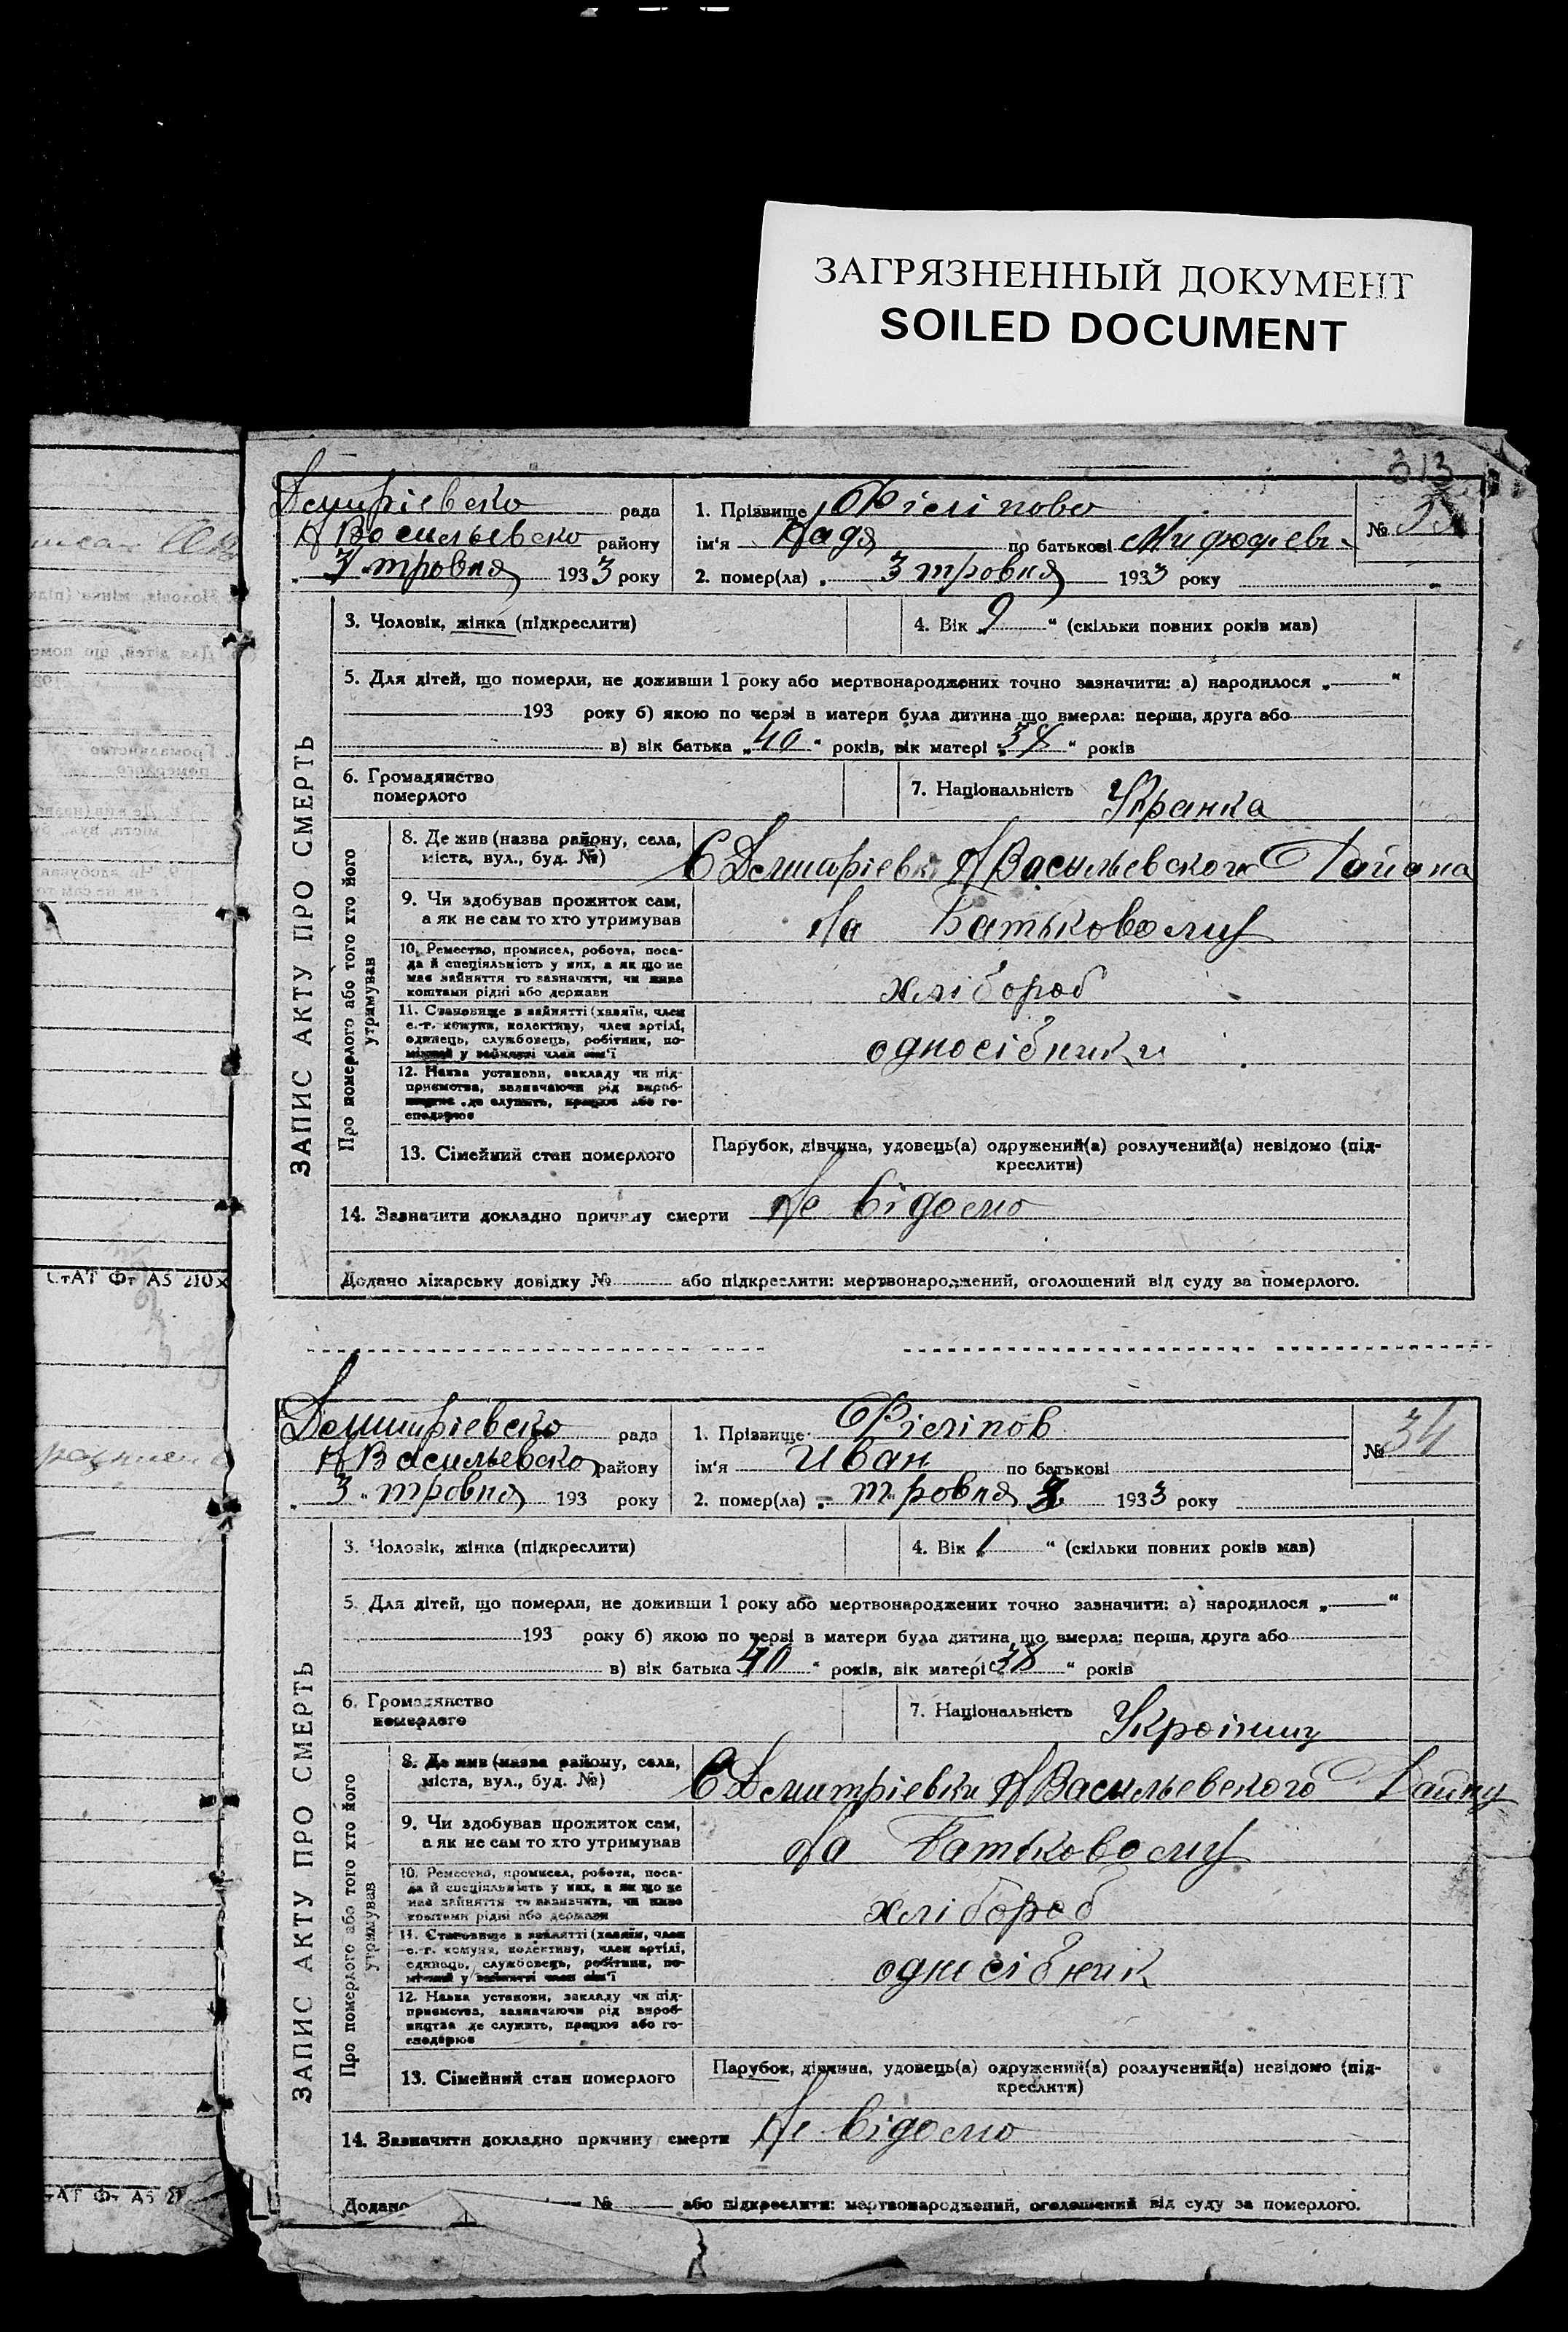 ЗАГРЯЗНЕННЫЙ ДОКУМЕНТ
SOILED DOCUMENT
313
Дмитріевско рада
Н Васильевско району
3 тровня 1933 року
1. Прізвище Філіпова
ім'я Надя по батькові
2. помер(ла) 3 тровня 1933 року
№
ЗАПИС АКТУ ПРО СМЕРТЬ
3. Чоловік, жінка (підкреслити)
4. Вік 9 “ (скільки повних років мав)
5. Для дітей, що померли, не доживши 1 року або мертвонароджених точно зазначити: а) народилося „ “
193 року б) якою по черзі в матери була дитина що вмерла: перша, друга або
в) вік батька „40“ років, вік матері „38“ років
6. Громадянство
померлого
7. Національність Українка
Про померлого або того хто його
утримував
8. Де жив (назва району, села,
міста, вул., буд. №)
С Дмитріевк Н Васильевского Района
9. Чи здобував прожиток сам,
а як не сам то хто утримував
На Батьковому
10. Ремество, промисел, робота, поса-
да й спеціяльність у них, а як що не
має зайняття то зазначити, чи жива
коштами рідні або держави
хлібороб
11. Становище в зайнятті (хазяїн, член
с.-г. комуни, колективу, член артілі,
одинець, службовець, робітник, по-
мічний у зайнятті член сім'ї
односібники
12. Назва установи, закладу чи під-
приємства, зазначаючи рід вироб-
ництва де служить, працює або го-
сподарює
13. Сімейний стан померлого
Парубок, дівчина, удовець(а) одружений(а) розлучений(а) невідомо (під-
креслити)
14. Зазначити докладно причину смерти Не відомо
Додано лікарську довідку № або підкреслити: мертвонароджений, оголошений від суду за померлого.
СтАТ Фт А5 210х
Дмитріевско рада
Н Васильевско району
3 “ тровня 193 року
1. Прізвище Філіпов
ім'я Иван по батькові
2. помер(ла) „ тровня 3 1933 року
№ 34
ЗАПИС АКТУ ПРО СМЕРТЬ
3. Чоловік, жінка (підкреслити)
4. Вік 1 “ (скільки повних років мав)
5. Для дітей, що померли, не доживши 1 року або мертвонароджених точно зазначити: а) народилося „ “
193 року б) якою по черзі в матери була дитина що вмерла: перша, друга або
в) вік батька 40 “ років, вік матері 38 “ років
6. Громадянство
померлого
7. Національність Україниц
Про померлого або того хто його
утримував
8. Де жив (назва району, села,
міста, вул., буд. №)
С Дмитріевки Н Васильевского Району
9. Чи здобував прожиток сам,
а як не сам то хто утримував
На Батьковому
10. Ремество, промисел, робота, поса-
да й спеціяльність у них, а як що не
має зайняття то зазначити, чи жива
коштами рідні або держави
хлібороб
11. Становище в зайнятті (хазяїн, член
с.-г. комуни, колективу, член артілі,
одинець, службовець, робітник, по-
мічний у зайнятті член сім'ї
односібник
12. Назва установи, закладу чи під-
приємства, зазначаючи рід вироб-
ництва де служить, працює або го-
сподарює
13. Сімейний стан померлого
Парубок, дівчина, удовець(а) одружений(а) розлучений(а) невідомо (під-
креслити)
14. Зазначити докладно причину смерти Не відомо
Додано № або підкреслити: мертвонароджений, оголошений від суду за померлого.